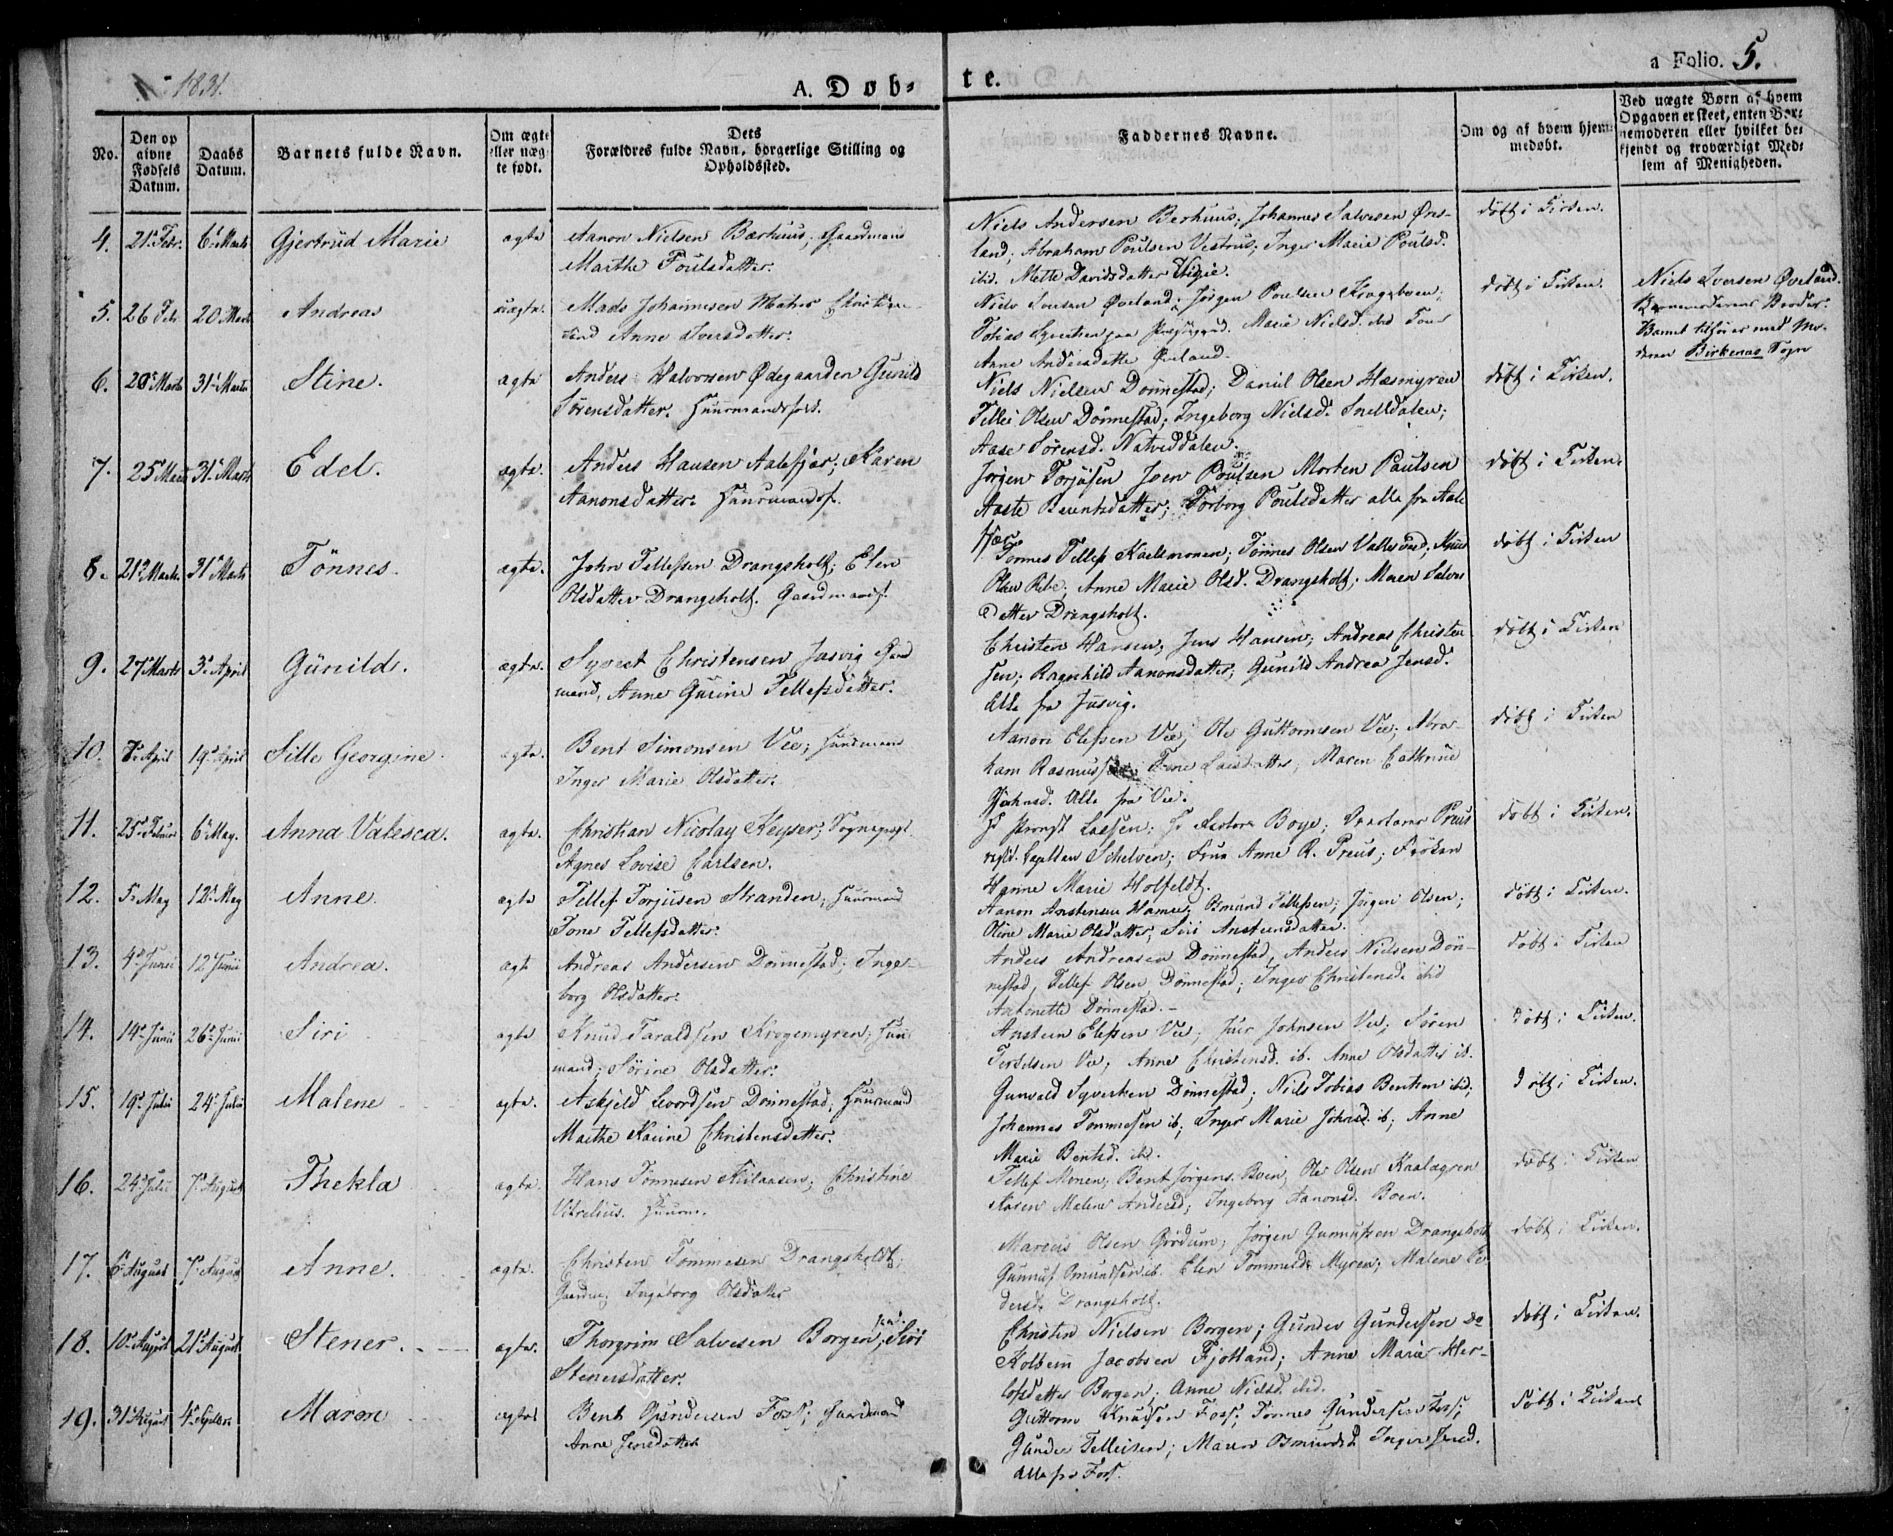 1831.
A. Døb-
te.
a Folio. 5.
No.
Den op
givne
Fødsels
Datum.
Daabs
Datum.
Barnets fulde Navn.
Om ægte
eller uæg-
te født.
Dets
Forældres fulde Navn, borgerlige Stilling og
Opholdssted.
Faddernes Navne.
Om og af hvem hjem-
medøbt.
Ved uægte Børn af hvem
Opgaven er skeet, enten Bar-
nemoderen eller hvilket be-
kjendt og troværdigt Med-
lem af Menigheden.
4. 21 Febr. 6 Marts Gjertrud Marie ægte Aanon Nielsen Bærhuus; Gaardmand
Marthe Poulsdatter.
Niels Andersen Berhuus; Johannes Salvesen Øve-
land; Abraham Poulsen Vestrus; Inger Marie Poulsd.
ibid. Mette Davidsdatter
døbt i Kirken.
5. 26 Febr 20 Marts Andreas uægte. Mads Johannesen Christian-
sand Anne Iversdatter.
Niels Iversen Øveland; Jørgen Poulsen
Tobias Marie Nielsd.
Anne Andersdatter Øveland.
døbt i Kirken.
Niels Iversen Øveland.
Barnemoderens Broder.
Barnet tilfører med Mo-
deren Birkenas Sogn
6. 20 Marts 31 Marts Stine. ægte Anders Halvorsen Ødegaarden Gunild
Sørensdatter. Huusmandsfolk.
Niels Nielsen Dønnestad; Daniel Olsen Hæsmyren
Tellef Olsen Dønnestad; Ingeborg Nielsd. Snelldalen;
Aase Sørensd. Natveddalen.
døbt i Kirken.
7. 25 Marts 31 Marts Edel. ægte. Anders Hansen Aalefjær; Karen
Aanonsdatter. Huusmandsf.
Jørgen Torjusen Joen Poulsen Morten Paulsen
Aaste Berentsdatter; Torborg Poulsdatter alle fra Aale
fjær.
døbt i Kirken.
8. 21 Marts 31 Marts Tønnes. ægte. John Tellefsen Drangsholt; Elen
Olsdatter Drangsholt. Gaardmandsf.
Tønnes Tellefs Tønnes Olsen
Olsen Anne Marie Olsd. Drangsholt; Maren Salves
datter Drangsholt.
døbt i Kirken
9. 27 Marts 3 April Gunild. ægte. Syvert Christensen Jusvig Gaard
mand, Anne Gurine Tellefsdatter.
Christen Hansen; Jens Hansen; Andreas Christen
sen; Ragnhild Aanonsdatter; Gunild Andrea Jensd.
Alle fra Jusvig.
døbt i Kirken
10. 7 April 19 April Sille Georgine. ægte. Bent Simonsen Vee; Huusmand
Inger Marie Olsdatter.
Aanon Elefsen Vee; Ole Guttormsen Vee; Abra-
ham Rasmussen Tone Larsdatter; Maren Cathrine
Johnsd. Alle fra Vee.
døbt i Kirken
11. 25 Februar 6 May. Anna Valesca. ægte. Christian Nicolay Keyser; Sognepræst.
Agnes Lovise Carlsen.
Hr Provst Lassen; Hr Pastor Boye; Preus
resid. Capellan Schelven; Frue Anne R. Preus; Frøken
Hanne Marie Holfeldt.
døbt i Kirken.
12. 5 May 12 May Anne. ægte Tellef Torjusen Stranden; Huusmand
Tone Tellefsdatter.
Aanon Anstensen Hamre; Osmund Tellefsen; Jørgen Olsen;
Oline Marie Olsdatter; Siri Anstensdatter.
døbt i Kirken.
13. 4 Junii 12 Junii Andrea. ægte Andreas Andersen Dønnestad; Inge-
borg Olsdatter.
Anders Andreasen Dønnestad, Anders Nielsen Døn-
nestad, Tellef Olsen Dønnestad; Inger Christensd. ibid
Antonette Dønnestad.
døbt i Kirken
14. 14 Junii 26 Junii Siri ægte Knud Taraldsen Krogemyren; Huus
mand; Sørine Olsdatter.
Ansteen Elefsen Vee; Iver Johnsen Vee; Søren
Terkelsen Vee, Anne Christensd. ib. Anne Olsdatter ib.
døbt i Kirken.
15. 19 Julii 24 Julii Malene ægte. Askjeld Loordsen Dønnestad, Huusmand
Marthe Karine Christensdatter.
Gunvald Syvertsen Dønnestad; Niels Tobias Bentsen ibid;
Johannes Tommesen ib; Inger Marie Johnsd. ib; Anne
Marie Bentsd. ibd.
døbt i Kirken.
16. 24 Julii 7 August Thekla ægte. Hans Tønnesen Christine
Vitrelius. Huusm.
Tellef Moen; Bent Jørgens. Boen; Ole Olsen
Karen Malene Andersd; Ingeborg Aanonsd. Boen.
døbt i Kirken
17. 6 August 7 August Anne. ægte. Christen Tommesen Drangsholdt;
Gaardm; Ingeborg Olsdatter
Marcus Olsen Jørgen Gunnufsen Drangsholt
Gunnuf Osmundsen ib. Elen Tommesd. Myren; Malene Pe-
dersd. Drangsholt.
døbt i Kirken.
18. 10 August 21 August Stener. ægte. Thorgrim Salvesen Borgen; Siri
Stenersdatter.
Christen Nielsen Borgen; Gunder Gundersen Do
Kolbein Jacobsen Fjotland; Anne Marie Her-
lofsdatter Borgen; Anne Nielsd. ibid.
døbt i Kirken.
19. 31 August 4 Septem Maren ægte Bent Gundersen Foss; Gaardmand
Anne Jensdatter
Guttorm Knudsen Foss; Tønnes Gundersen Foss;
Gunder Tellefsen; Maren Osmundsd Inger Jensd.
Alle fra Foss.
døbt i Kirken